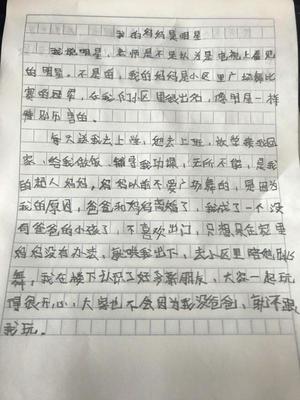 我的妈妈是明星
我说明星，老师是不是认为是电视上看见
的明星。不是的，我的妈妈是小区里广场舞比
赛的冠军，在我们小区里很出名，像明星一样
特别厉害的。
每天送我去上班，她去上班，放学接我回
家，给我做饭，辅导我功课，无所不能，是我
的超人妈妈。妈妈以前不爱广场舞的，是因为
我的原因，爸爸和妈妈离婚了，我成了一个没
有爸爸的小孩了，不喜欢出门，只想呆在家里
妈妈没有办法，就哄我出下，去小区里陪她跳
舞，我在楼下认识了好多新朋友，大家一起玩
得很开心，大家也不会因为我没爸爸，就不跟
我玩。